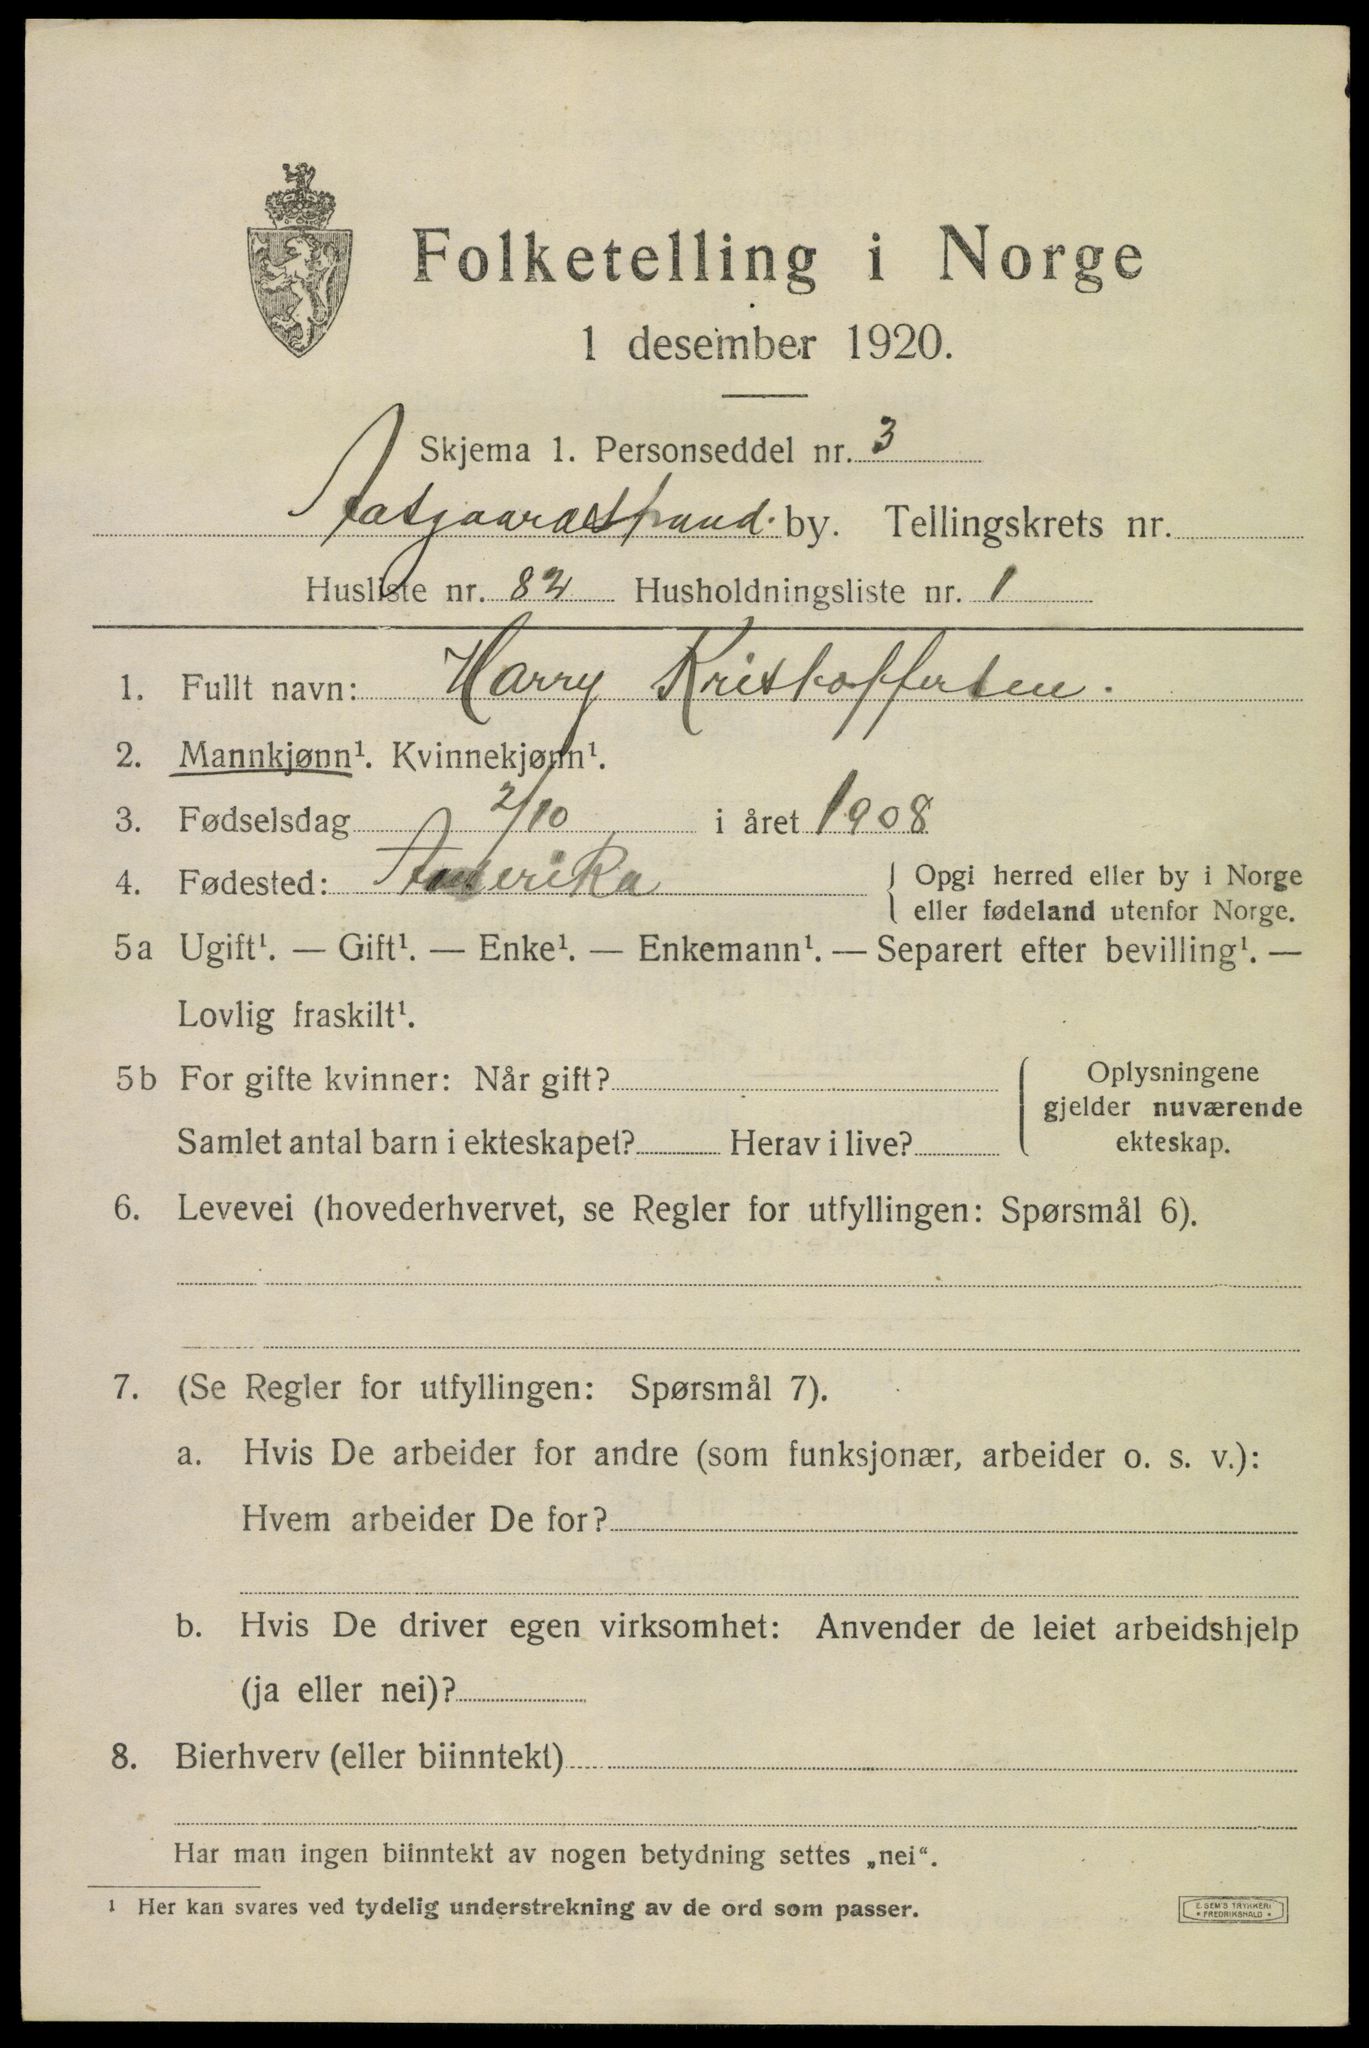 Folketelling i Norge
1 desember 1920.
Skjema 1. Personseddel nr. 3
Aasgaardstrand. by. Tellingskrets nr.
Husliste nr. 82 Husholdningsliste nr. 1
1. Fullt navn: Harry Kristoffersen.
2. Mannkjønn¹. Kvinnekjønn¹.
3. Fødselsdag 2/10 i året 1908
4. Fødested: Amerika { Opgi herred eller by i Norge
eller fødeland utenfor Norge.
5a Ugift¹. — Gift¹. — Enke¹. — Enkemann¹. — Separert efter bevilling¹. —
Lovlig fraskilt¹.
5b For gifte kvinner: Når gift? { Oplysningene
gjelder nuværende
Samlet antal barn i ekteskapet? Herav i live? ekteskap.
6. Levevei (hovederhvervet, se Regler for utfyllingen: Spørsmål 6).
7. (Se Regler for utfyllingen: Spørsmål 7).
a. Hvis De arbeider for andre (som funksjonær, arbeider o. s. v.):
Hvem arbeider De for?
b. Hvis De driver egen virksomhet: Anvender de leiet arbeidshjelp
(ja eller nei)?
8. Bierhverv (eller biinntekt)
Har man ingen biinntekt av nogen betydning settes „nei“.
1 Her kan svares ved tydelig understrekning av de ord som passer.
E. SEM'S TRYKKERI
* FREDRIKSHALD *